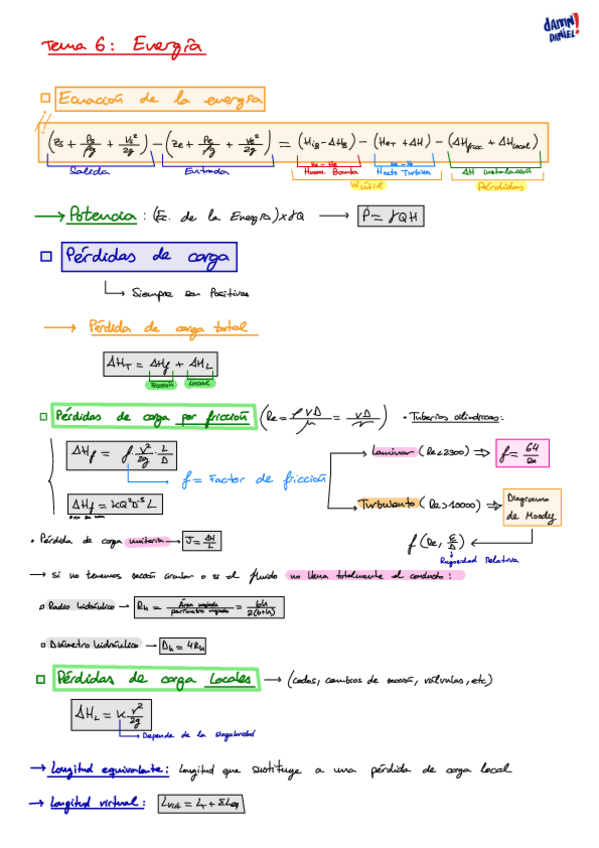 DAMN!
DANIEL
Tema 6: Energía
Ecuación de la energía
(Zs + Ps/ρg + Vs²/2g) − (Ze + Pe/ρg + Ve²/2g) = (HiB − ΔHB) − (HeT + ΔH) − (ΔHfricc + ΔHlocal)
Salida Entrada Hman Bomba Hneta Turbina ΔH instalación
Pérdidas
→ Potencia : (Ec. de la Energía) x γQ → P = γQH
Pérdidas de carga
Siempre son Positivas
→ Pérdida de carga total
ΔHT = ΔHf + ΔHL
Fricción Local
Pérdidas de carga por fricción (Re = ρVD/μ = VD/ν) • Tuberías cilíndricas:
ΔHf = f · V²/2g · L/D
Laminar (Re<2300) ⇒ f = 64/Re
f = Factor de fricción
ΔHf = KQ²D⁻⁵ L
Turbulento (Re>10000) ⇒ Diagrama de Moody
f (Re, ε/D)
Rugosidad Relativa
• Pérdida de carga unitaria → J = ΔH/L
→ Si no tenemos sección circular o si el fluido no llena totalmente el conducto:
Radio hidráulico → Rh = Área mojada/perímetro mojado = bh/2(b+h)
Diámetro hidráulico → Dh = 4Rh
Pérdidas de carga Locales → (codos, cambios de sección, válvulas, etc)
ΔHL = K V²/2g
Depende de la singularidad
→ Longitud equivalente: Longitud que sustituye a una pérdida de carga local
→ Longitud virtual: Lvirt = LT + ΣLeq